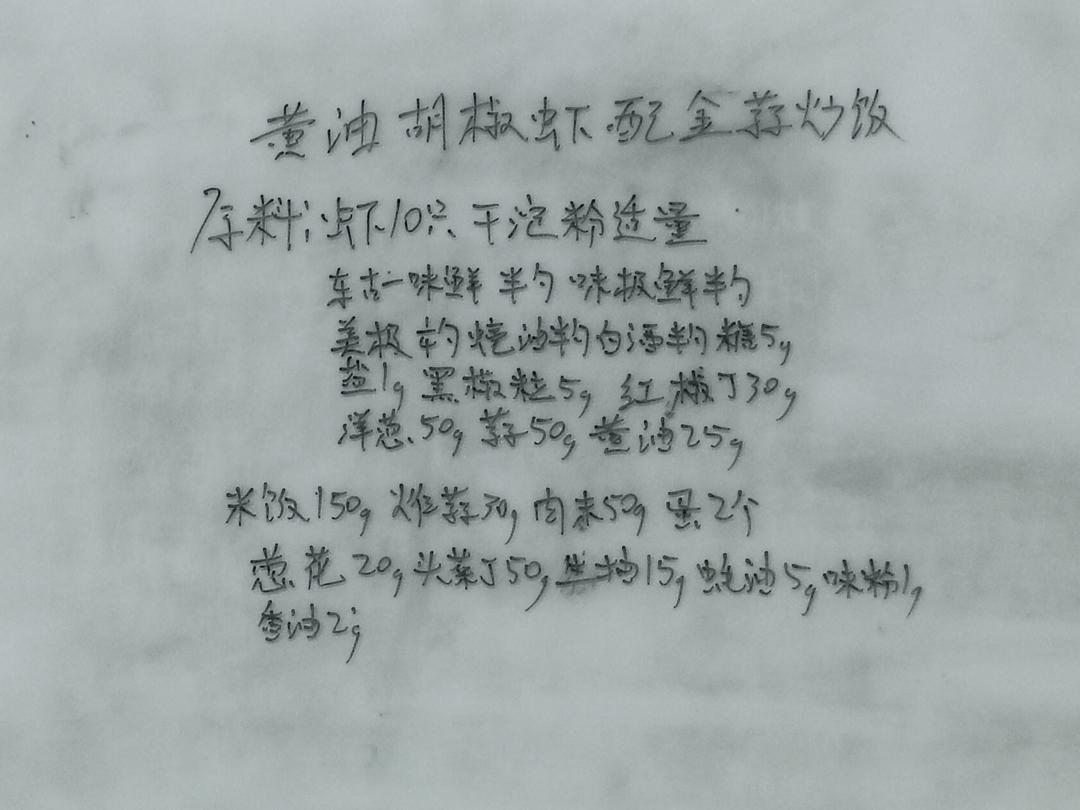 黄油胡椒虾配金蒜炒饭
原料:虾10只 干淀粉适量
东古一味鲜 半勺 味极鲜半勺
美极半勺 烧油半勺 白酒半勺 糖5g
盐1g 黑椒粒5g 红椒丁30g
洋葱50g 蒜子50g 黄油25g
米饭150g 炸蒜30g 肉末50g 蛋2个
葱花20g 头菜丁50g 生抽15g 蚝油5g 味粉1g
香油2g